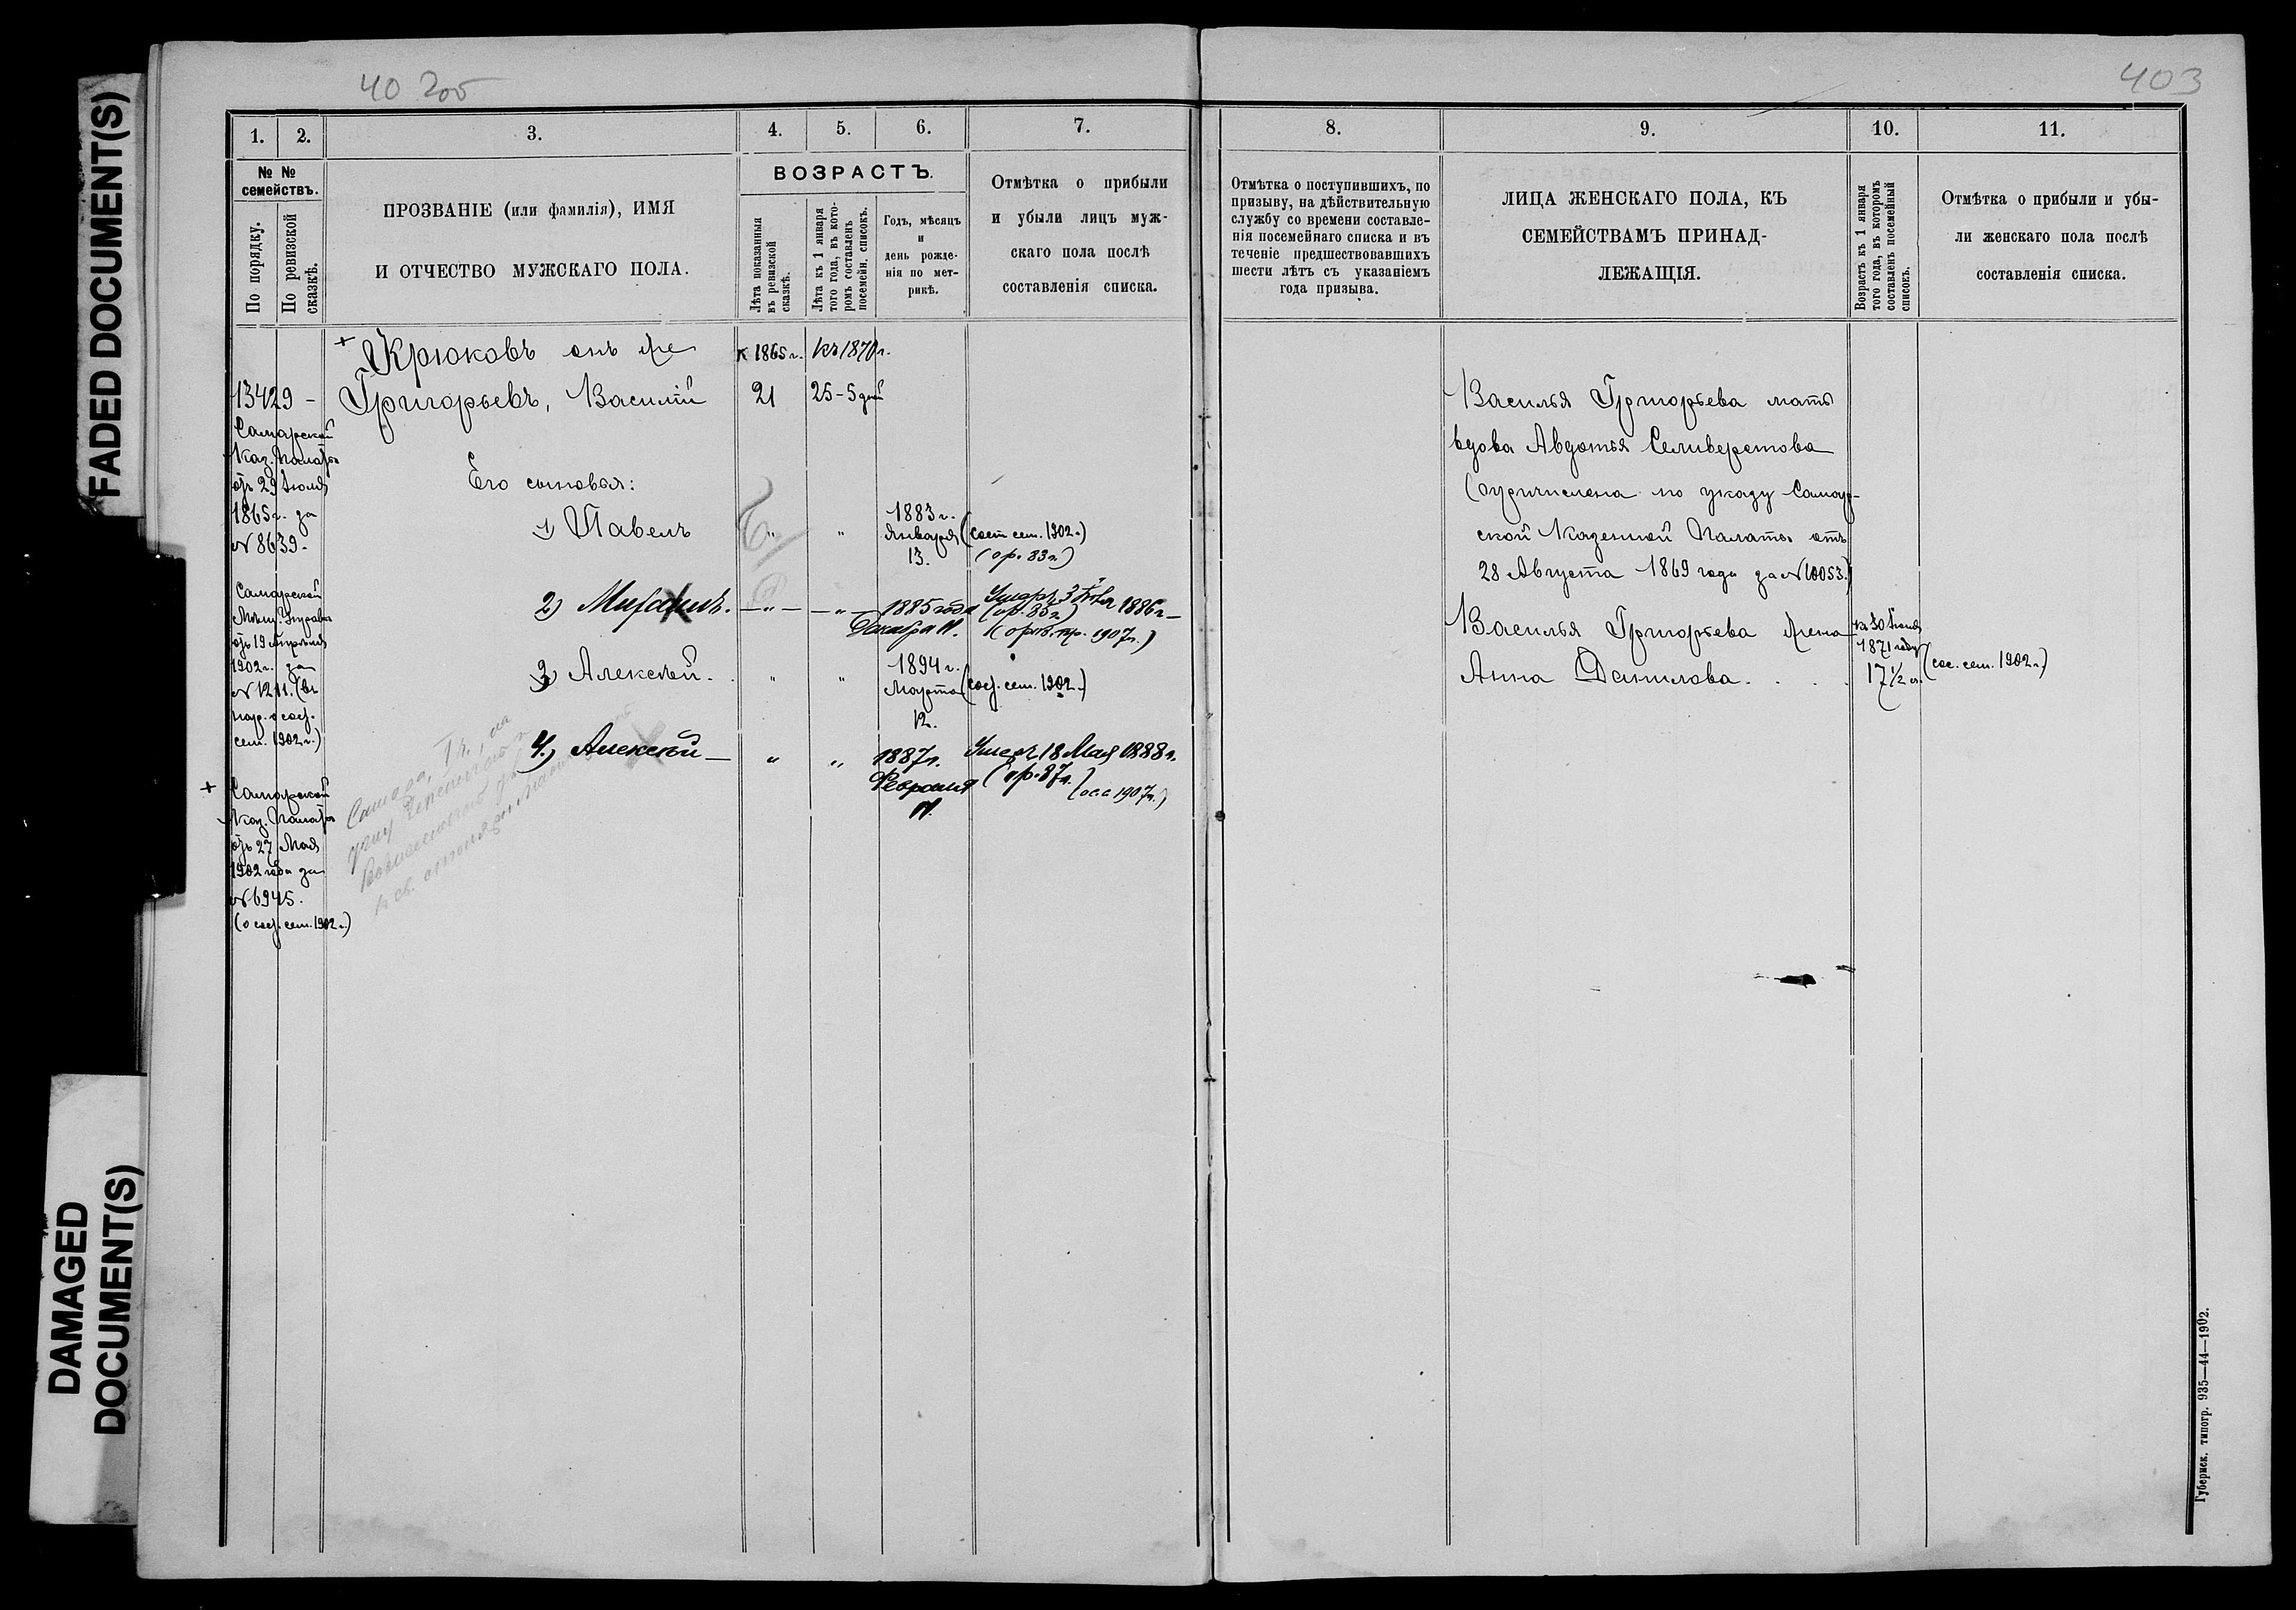 FADED DOCUMENT(S)
DAMAGED
DOCUMENT(S)
403
1. 2. 3. 4. 5. 6. 7.
№ №
семействъ.
По порядку.
По ревизской
сказкѣ.
ПРОЗВАНІЕ (или фамилія), ИМЯ
И ОТЧЕСТВО МУЖСКАГО ПОЛА.
ВОЗРАСТЪ.
Лѣта показанныя
въ ревизской
сказкѣ.
Лѣта къ 1 января
того года, въ кото-
ромъ составленъ
посемейн. списокъ.
Годъ, мѣсяцъ
и
день рожде-
нія по мет-
рикѣ.
Отмѣтка о прибыли
и убыли лицъ муж-
скаго пола послѣ
составленія списка.
Крюковъ онъ же
к 1865 г. къ 1870 г.
13429 -
Григорьевъ, Василій 21 25-5 дней
Самарской
Каз. Палаты
отъ 29 Іюля
1865 г. за
№ 8639.
Его сыновья:
1) Павелъ " " 1883 г.
Января
13.
(сост сем. 1902 г.)
(ор. 83 г.)
Самарской
Мѣщ. Управы
отъ 19 Апрѣля
1902 г. за
№ 1211. (въ
сем. 1902 г.)
2) Михаилъ. — " — — " — 1885 года
Декабря 11.
Умеръ 3 1886 г.
(ор. 85 г.)
1907 г.)
3) Алексѣй. " " 1894 г.
Марта
12.
(сос. сем. 1902 г.)
4.) Алексѣй — " " 1887 г.
Февраля
11.
Умеръ 18 Мая 1888 г.
(ор. 87 г.)
(о с.с 1907 г.)
Самарской
Каз. Палаты
отъ 27 Мая
1902 года за
№ 6945.
(о сос. сем. 1902 г.)
8. 9. 10. 11.
Отмѣтка о поступившихъ, по
призыву, на дѣйствительную
службу со времени составле-
нія посемейнаго списка и въ
теченіе предшествовавшихъ
шести лѣтъ съ указаніемъ
года призыва.
ЛИЦА ЖЕНСКАГО ПОЛА, КЪ
СЕМЕЙСТВАМЪ ПРИНАД-
ЛЕЖАЩІЯ.
Возрастъ къ 1 января
того года, въ которомъ
составленъ посемейный
списокъ.
Отмѣтка о прибыли и убы-
ли женскаго пола послѣ
составленія списка.
Василья Григорьева мать
вдова Авдотья Селиверстова
(причислена по указу Самар-
ской Казенной Палаты отъ
28 Августа 1869 года за № 10053.)
Василья Григорьева жена
Анна Данилова. . . .
къ 30 Іюня
1871 году
17 1/2 л.
(сос. сем. 1902 г.)
Губернск. типогр. 935—44—1902.